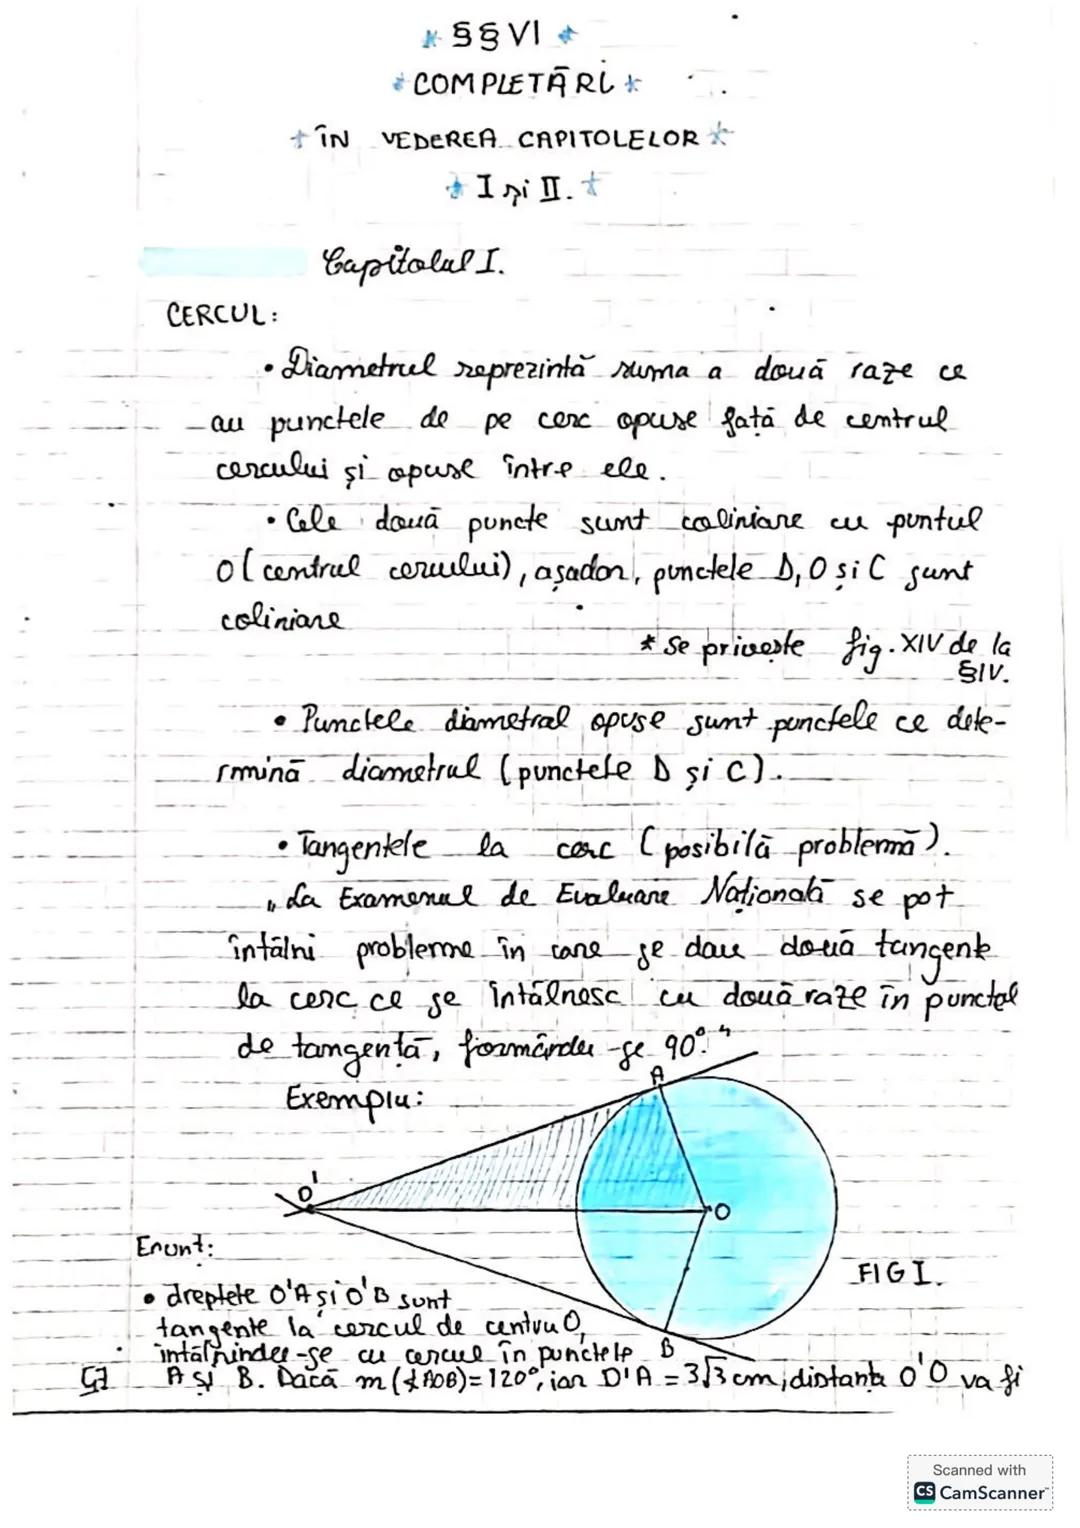 §§ VI
COMPLETĂRI
ÎN VEDEREA CAPITOLELOR
I și II.
Capitolul I.
CERCUL:
• Diametrul reprezintă suma a două raze ce
au punctele de pe cerc opuse față de centrul
cercului și opuse între ele.
• Cele două puncte sunt coliniare cu puntul
O (centrul cercului), așadar, punctele D, O și C sunt
coliniare
* Se privește fig. XIV de la
§IV.
• Punctele diametral opuse sunt punctele ce dete-
rmină diametrul (punctele D și C).
• Tangentele la cerc (posibilă problemă).
„La Examenul de Evaluare Națională se pot
întâlni probleme în care se dau două tangente
la cerc ce se întâlnesc cu două raze în punctul
de tangență, formându-se 90°."
Exemplu:
A
O'
O
Enunț:
FIG I.
• dreptele O'A și O'B sunt
tangente la cercul de centru O,
întâlnindu-se cu cercul în punctele
B
A și B. Dacă m(∢AOB)=120°, iar O'A = 3√3 cm, distanța O'O va fi
57
Scanned with
CS CamScanner